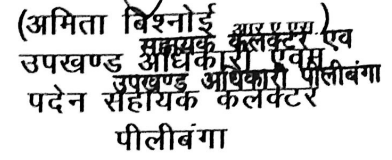 (अमिता बिश्नोई आर ए एस)
सहायक कलक्टर एव
उपखण्ड अधिकारी एवम
उपखण्ड अधिकारी पीलीबंगा
पदेन सहायक कलक्टर
पीलीबंगा